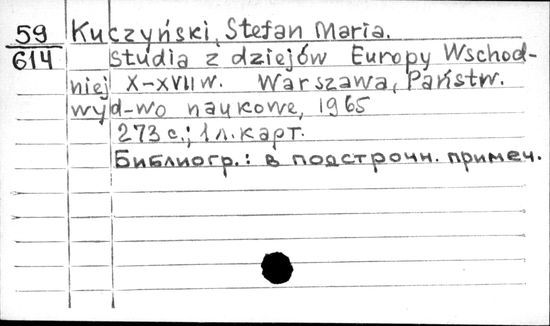 59 Kuczyński, Stefan Maria.
614 Studia z dziejów Europy Wschod-
niej X-XVII w. Warszawa, Państw.
wyd-wo naukowe, 1965
273 с.; 1 л. карт.
Библиогр.: в подстрочн. примеч.